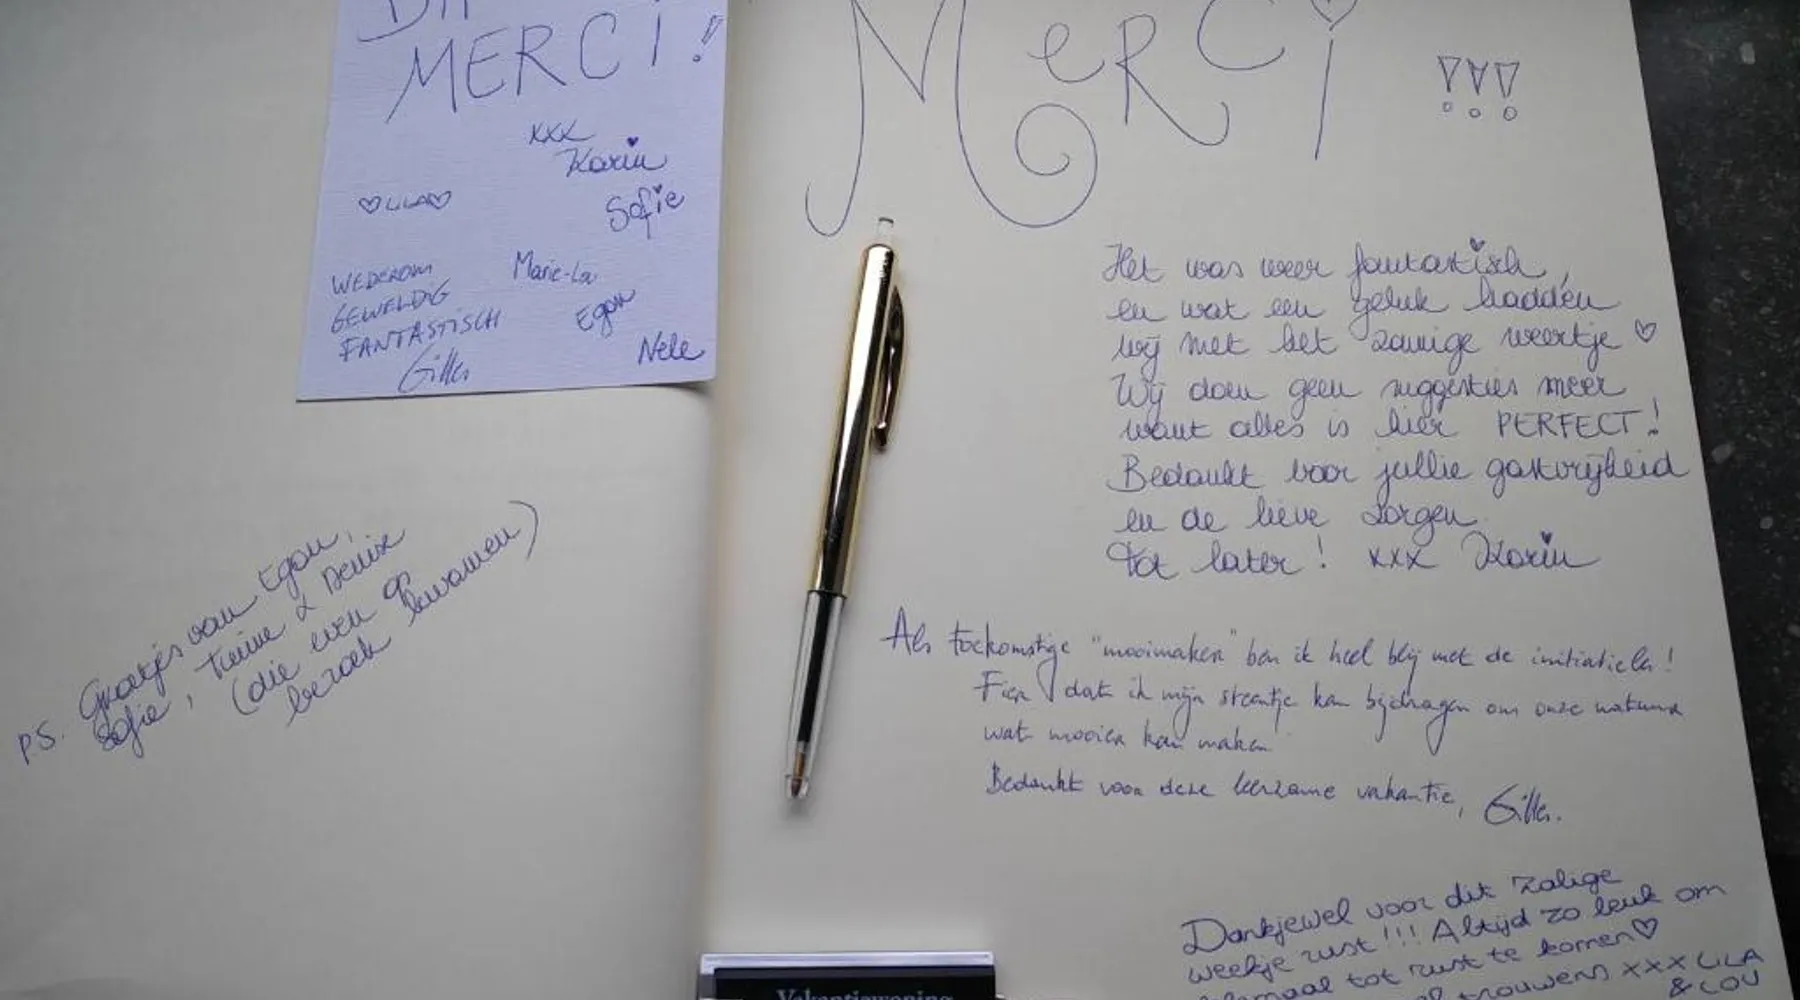 MERCI!
xxx
Karin
♡LILA♡
Sofie
WEDEROM
GEWELDIG
FANTASTISCH
Gilles
Marie-Lou
Egon
Nele
P.S. Groetjes van Egon,
Sofie, Tieme & Denise
(die even op
bezoek kwamen)
MeRCi !!!
Het was weer fantastisch,
en wat een geluk hadden
wij met het zonnige weertje ♡
Wij doen geen suggesties meer
want alles is hier PERFECT!
Bedankt voor jullie gastvrijheid
en de lieve zorgen.
Tot later! xxx Karin
Als toekomstige "mooimaker" ben ik heel blij met de initiatieven!
Fier dat ik mijn steentje kan bijdragen om onze natuur
wat mooier kan maken
Bedankt voor deze leerzame vakantie, Gilles.
Dankjewel voor dit zalige
weekje rust!!! Altijd zo leuk om
helemaal tot rust te komen♡
trouwens xxx LILA
& LOU
Vakantiewoning